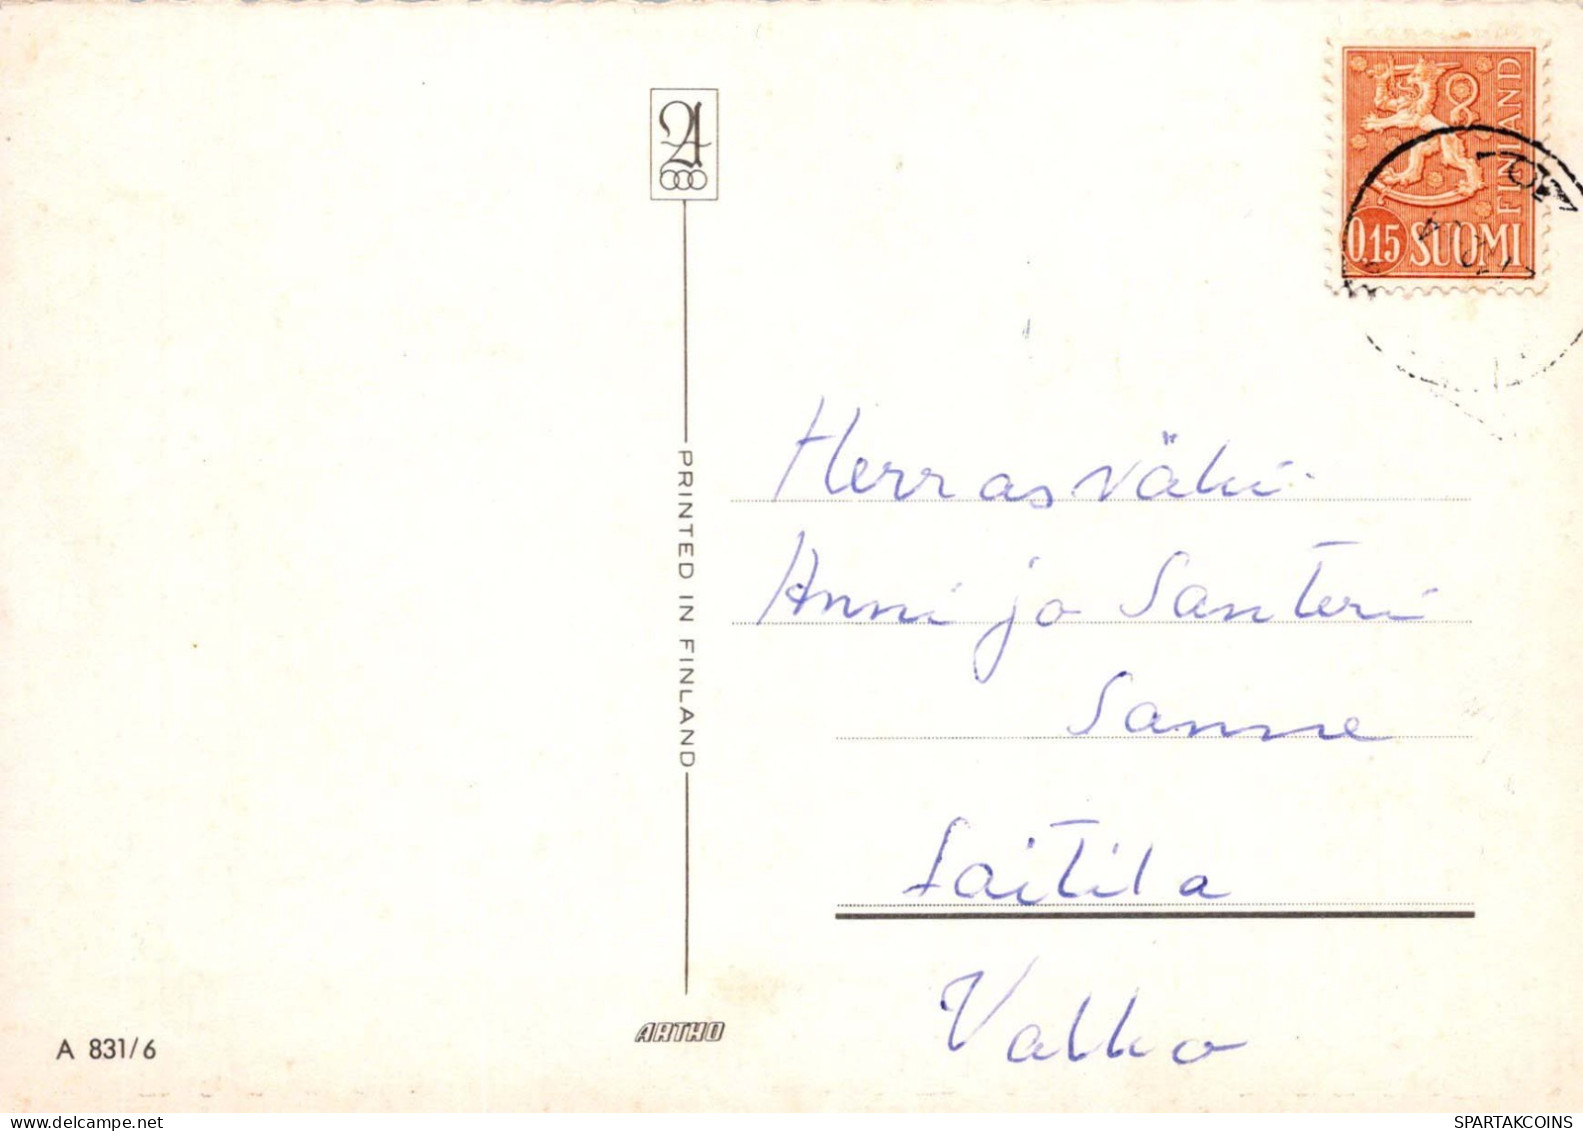 0.15 SUOMI
FINLAND
PRINTED IN FINLAND
Herrasväki
Anni ja Santeri
Sanne
Laitila
Valko
ARTHO
A 831/6
delcampe.net
SPARTAKCOINS